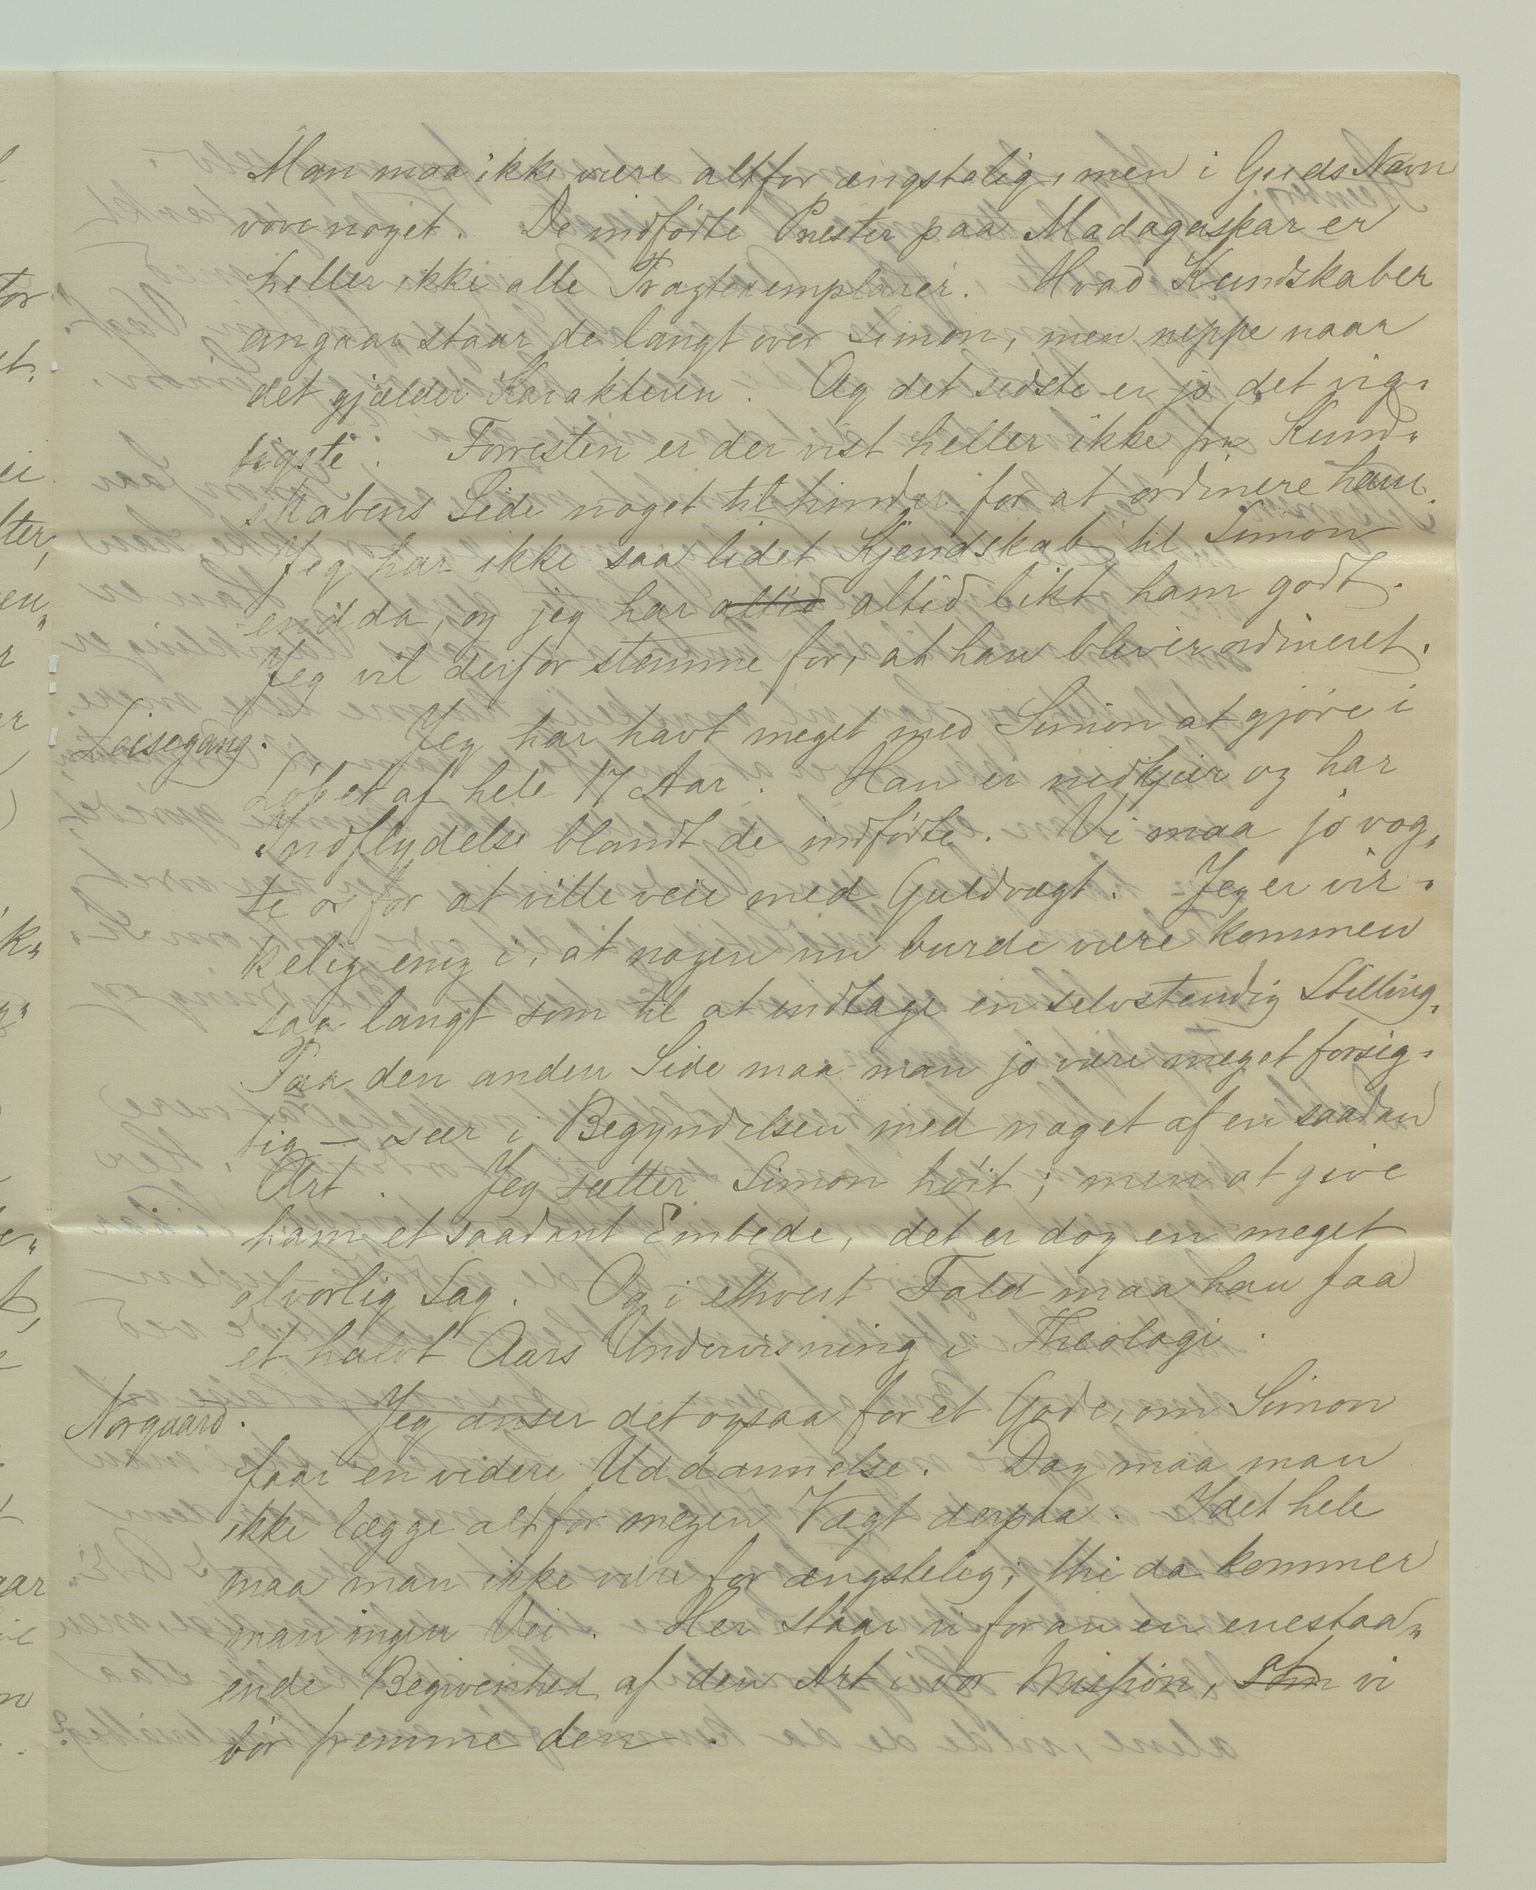 Man maa ikke være altfor ængstelig, men i Guds Navn
vove noget. De indfødte Prester paa Madagaskar er
heller ikke alle Pragtexemplarer. Hvad Kundskaber
angaar staar de langt over Simon, men neppe naar
det gjælder Karakteren. Og det sidste er jo det vig-
tigste. Forresten er der vist heller ikke fra Kund-
skabens Side noget til hinder for at ordinere ham.
Jeg har ikke saa lidet Kjendskab til Simon
endda, og jeg har altid altid likt ham godt.
Jeg vil derfor stemme for, at han bliver ordineret.
Leisegang. Jeg har havt meget med Simon at gjøre i
Løbet af hele 17 Aar. Han er nidkjær og har
Indflydelse blandt de indfødte. Vi maa jo vog-
te os for at ville veie med Guldvægt. Jeg er vir-
kelig enig i, at nogen nu burde være kommen
saa langt som til at indtage en selvstendig Stilling.
Paa den anden Side maa man jo være meget forsig-
tig – især i Begyndelsen med noget af en saadan
Art. Jeg sætter Simon høit; men at give
ham et saadant Embede, det er dog en meget
alvorlig Sag. Og i ethvert Fald maa han faa
et halvt Aars Undervisning i Theologi.
Norgaard. Jeg anser det ogsaa for et Gode, om Simon
faar en videre Uddannelse. Dog maa man
ikke lægge altfor megen Vægt derpaa. I det hele
maa man ikke være for ængstelig; thi da kommer
man ingen Vei. Her staar vi foran en enestaa-
ende Begivenhed af den Art i vor Mission, som at vi
bør fremme den.